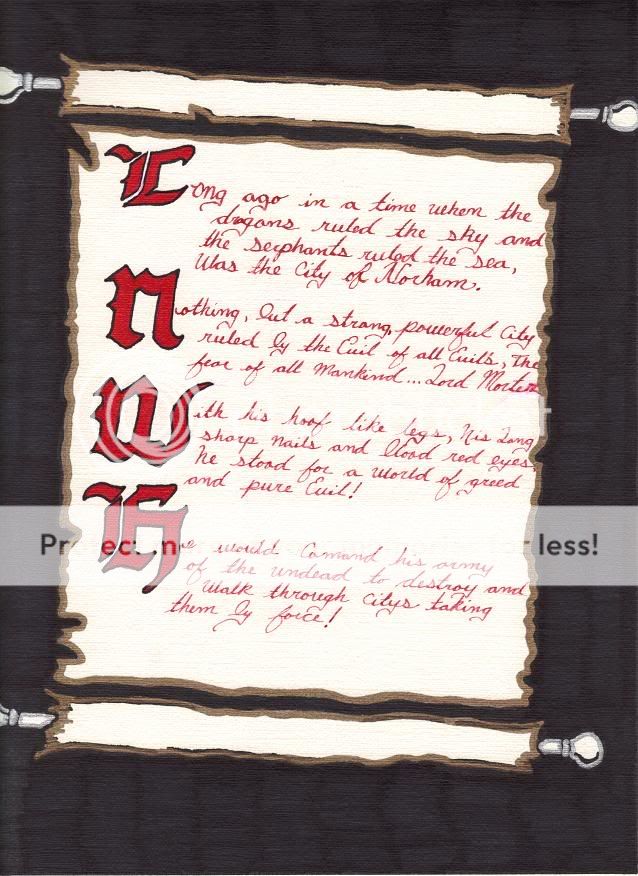 Long ago in a time when the
dragons ruled the sky and
the serphants ruled the sea,
Was the City of Norham.
Nothing, but a strang, powerful City
ruled by the Evil of all Evils, the
fear of all Mankind... Lord Morten
With his hoof like legs, his Long
sharp nails and blood red eyes.
he stood for a world of greed
and pure Evil!
He would Comand his army
of the undead to destroy and
Walk through Citys taking
them by force!
less!